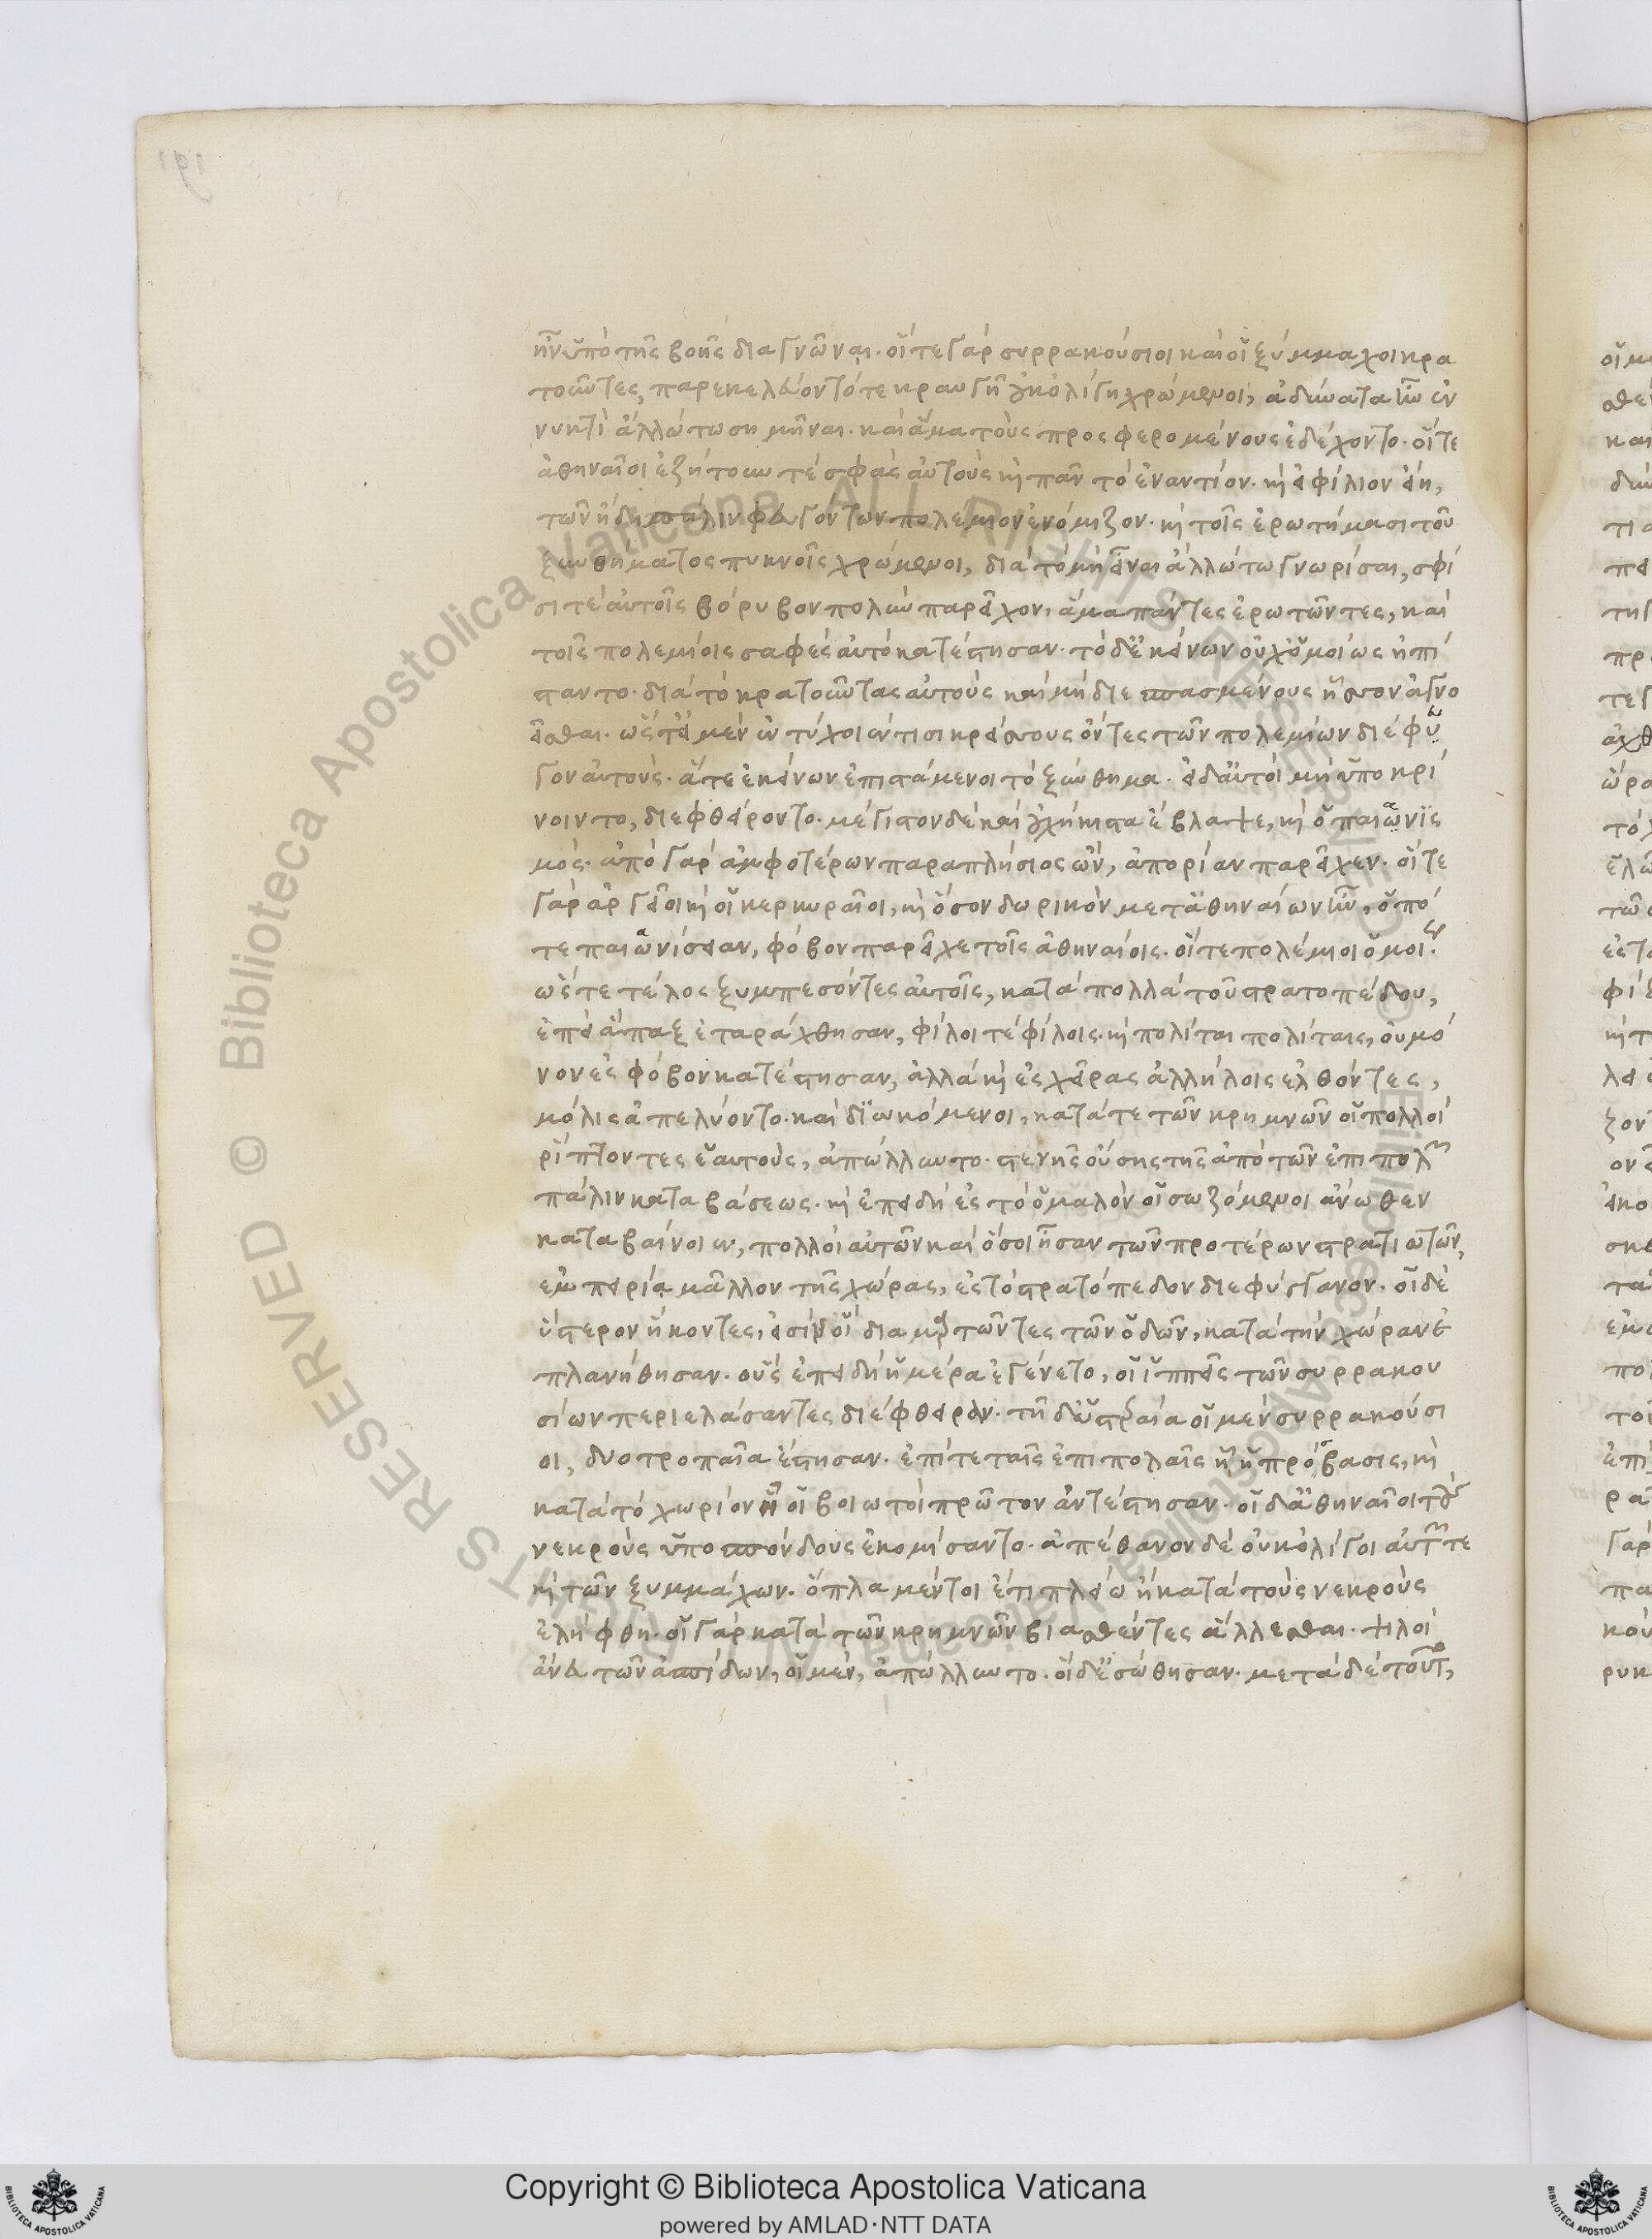 ἦν ὑπὸ τῆς βοῆς διαγνῶναι. οἵ τε γὰρ συρρακούσιοι καὶ οἱ ξύμμαχοι κρα
τοῦντες, παρεκελεύοντό τε κραυγῆ οὐκ ὀλίγη χρώμενοι, ἀδύνατον ὂν ἐν
νυκτὶ ἄλλω τω σημῆναι. καὶ ἅμα τοὺς προσφερομένους ἐδέχοντο. οἵ τε
ἀθηναῖοι ἐζήτουν τέ σφᾶς αὐτοὺς καὶ πᾶν τὸ ἐναντίον. καὶ εἰ φίλιον εἴη,
τῶν ἤδη πάλιν φευγόντων πολέμιον ἐνόμιζον. καὶ τοῖς ἐρωτήμασι τοῦ
ξυνθήματος πυκνοῖς χρώμενοι, διὰ τὸ μὴ εἶναι ἄλλω τω γνωρίσαι, σφί
σι τὲ αὐτοῖς θόρυβον πολὺν παρεῖχον, ἅμα πάντες ἐρωτῶντες, καὶ
τοῖς πολεμίοις σαφὲς αὐτὸ κατέστησαν. τὸ δ' ἐκείνων οὐχ ὁμοίως ἠπί
σταντο. διὰ τὸ κρατοῦντας αὐτοὺς καὶ μὴ διεσπασμένους ἧσσον ἀγνο
εῖσθαι. ὥστ' εἰ μὲν ἐντύχοιέν τισι κρείσσους ὄντες τῶν πολεμίων διέφυ
γον αὐτοὺς. ἅτε ἐκείνων ἐπιστάμενοι τὸ ξύνθημα. εἰ δ' αὐτοὶ μὴ ὑποκρί
νοιντο, διεφθείροντο. μέγιστον δὲ καὶ οὐχ ἥκιστα ἔβλαψε, καὶ ὁ παιωνισ
μός. ἀπὸ γὰρ ἀμφοτέρων παραπλήσιος ὢν, ἀπορίαν παρεῖχεν. οἵ τε
γὰρ ἀργεῖοι καὶ οἱ κερκυραῖοι, καὶ ὅσον δωρικὸν μετ' ἀθηναίων ἦν, ὁπό
τε παιωνίσειαν, φόβον παρεῖχε τοῖς ἀθηναίοις. οἵ τε πολέμιοι ὁμοίως.
ὥστε τέλος ξυμπεσόντες αὐτοῖς, κατὰ πολλὰ τοῦ στρατοπέδου,
ἐπεὶ ἅπαξ ἐταράχθησαν, φίλοι τὲ φίλοις. καὶ πολίται πολίταις, οὐ μό
νον ἐς φόβον κατέστησαν, ἀλλὰ καὶ ἐς χεῖρας ἀλλήλοις ἐλθόντες,
μόλις ἀπελύοντο. καὶ διωκόμενοι, κατά τε τῶν κρημνῶν οἱ πολλοὶ
ῥίπτοντες ἑαυτοὺς, ἀπώλλυντο. στενῆς οὔσης τῆς ἀπὸ τῶν ἐπιπολῶν
πάλιν καταβάσεως. καὶ ἐπειδὴ ἐς τὸ ὁμαλὸν οἱ σωζόμενοι ἄνωθεν
καταβαίνοιεν, πολλοὶ αὐτῶν καὶ ὅσοι ἦσαν τῶν προτέρων στρατιωτῶν,
ἐμπειρία μᾶλλον τῆς χώρας, ἐς τὸ στρατόπεδον διεφύγγανον. οἱ δὲ
ὕστερον ἥκοντες, εἰσὶν οἳ διαμαρτῶντες τῶν ὁδῶν, κατὰ τὴν χώραν ἐ
πλανήθησαν. οὓς ἐπειδὴ ἡμέρα ἐγένετο, οἱ ἱππεῖς τῶν συρρακου
σίων περιελάσαντες διέφθειραν. τῆ δ' ὑστεραία οἱ μὲν συρρακούσι
οι, δυο τροπαῖα ἔστησαν. ἐπί τε ταῖς ἐπιπολαῖς ἧ ἡ πρόσβασις, καὶ
κατὰ τὸ χωρίον ἧ οἱ βοιωτοὶ πρῶτον ἀντέστησαν. οἱ δ' ἀθηναῖοι τοὺς
νεκροὺς ὑποσπόνδους ἐκομίσαντο. ἀπέθανον δὲ οὐκ ὀλίγοι αὐτῶν τε
καὶ τῶν ξυμμάχων. ὅπλα μέντοι ἔτι πλείω ἢ κατὰ τοὺς νεκροὺς
ἐλήφθη. οἱ γὰρ κατὰ τῶν κρημνῶν βιασθέντες ἅλλεσθαι. ψιλοὶ
ἄνευ τῶν ἀσπίδων, οἱ μὲν, ἀπώλλυντο. οἱ δ' ἐσώθησαν. μετὰ δὲ τοῦτο,
Copyright © Biblioteca Apostolica Vaticana
powered by AMLAD·NTT DATA